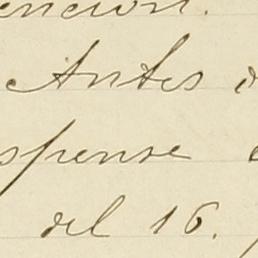 encion.
Antes
spense
del 16.